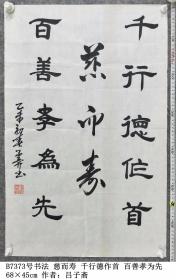 千行德作首
慈而寿
百善孝為先
乙未初春
B7373号书法 慈而寿 千行德作首 百善孝为先
68×45cm 作者：吕子斋